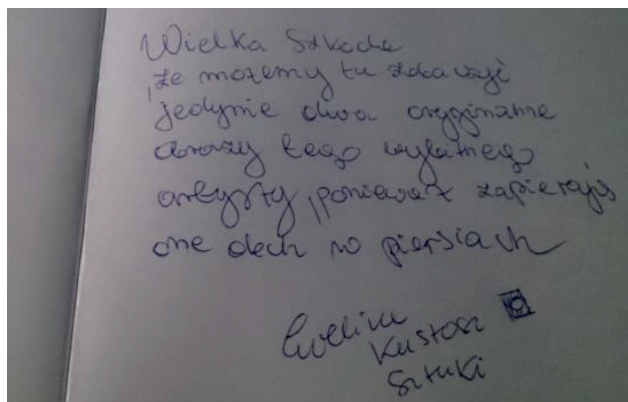 Wielka Szkoda
że możemy tu zobaczyć
jedynie dwa oryginalne
obrazy tego wybitnego
artysty, ponieważ zapierają
one dech w piersiach
Ewelina
Kustosz
Sztuki